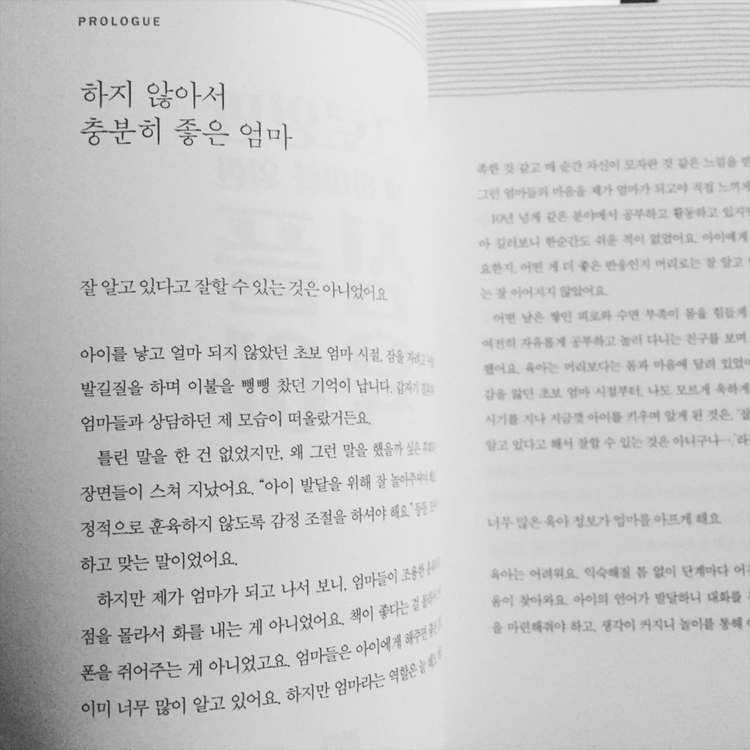 PROLOGUE
하지 않아서
충분히 좋은 엄마
잘 알고 있다고 잘할 수 있는 것은 아니었어요
아이를 낳고 얼마 되지 않았던 초보 엄마 시절, 잠을 자려고
발길질을 하며 이불을 뻥뻥 찼던 기억이 납니다. 갑자기
엄마들과 상담하던 제 모습이 떠올랐거든요.
틀린 말을 한 건 없었지만, 왜 그런 말을 했을까 싶은
장면들이 스쳐 지났어요. “아이 발달을 위해 잘 놀아주셔야
정적으로 훈육하지 않도록 감정 조절을 하셔야 해요.” 등등
하고 맞는 말이었어요.
하지만 제가 엄마가 되고 나서 보니, 엄마들이 조용한
점을 몰라서 화를 내는 게 아니었어요. 책이 좋다는 걸 몰라서
폰을 쥐어주는 게 아니었고요. 엄마들은 아이에게 해주면 좋은
이미 너무 많이 알고 있어요. 하지만 엄마라는 역할은 늘
족한 것 같고 매 순간 자신이 모자란 것 같은 느낌을
그런 엄마들의 마음을 제가 엄마가 되고야 직접 느끼게
10년 넘게 같은 분야에서 공부하고 활동하고 있지만
아 길러보니 한순간도 쉬운 적이 없었어요. 아이에게
요한지, 어떤 게 더 좋은 반응인지 머리로는 잘 알고
는 잘 이어지지 않았어요.
어떤 날은 쌓인 피로와 수면 부족이 몸을 힘들게
여전히 자유롭게 공부하고 놀러 다니는 친구를 보며
했어요. 육아는 머리보다는 몸과 마음에 달려 있었어
감을 앓던 초보 엄마 시절부터, 나도 모르게 욱하게
시기를 지나 지금껏 아이를 키우며 알게 된 것은, ‘잘
알고 있다고 해서 잘할 수 있는 것은 아니구나…’라
너무 많은 육아 정보가 엄마를 아프게 해요
육아는 어려워요. 익숙해질 틈 없이 단계마다
움이 찾아와요. 아이의 언어가 발달하니 대화를
을 마련해줘야 하고, 생각이 커지니 놀이를 통해